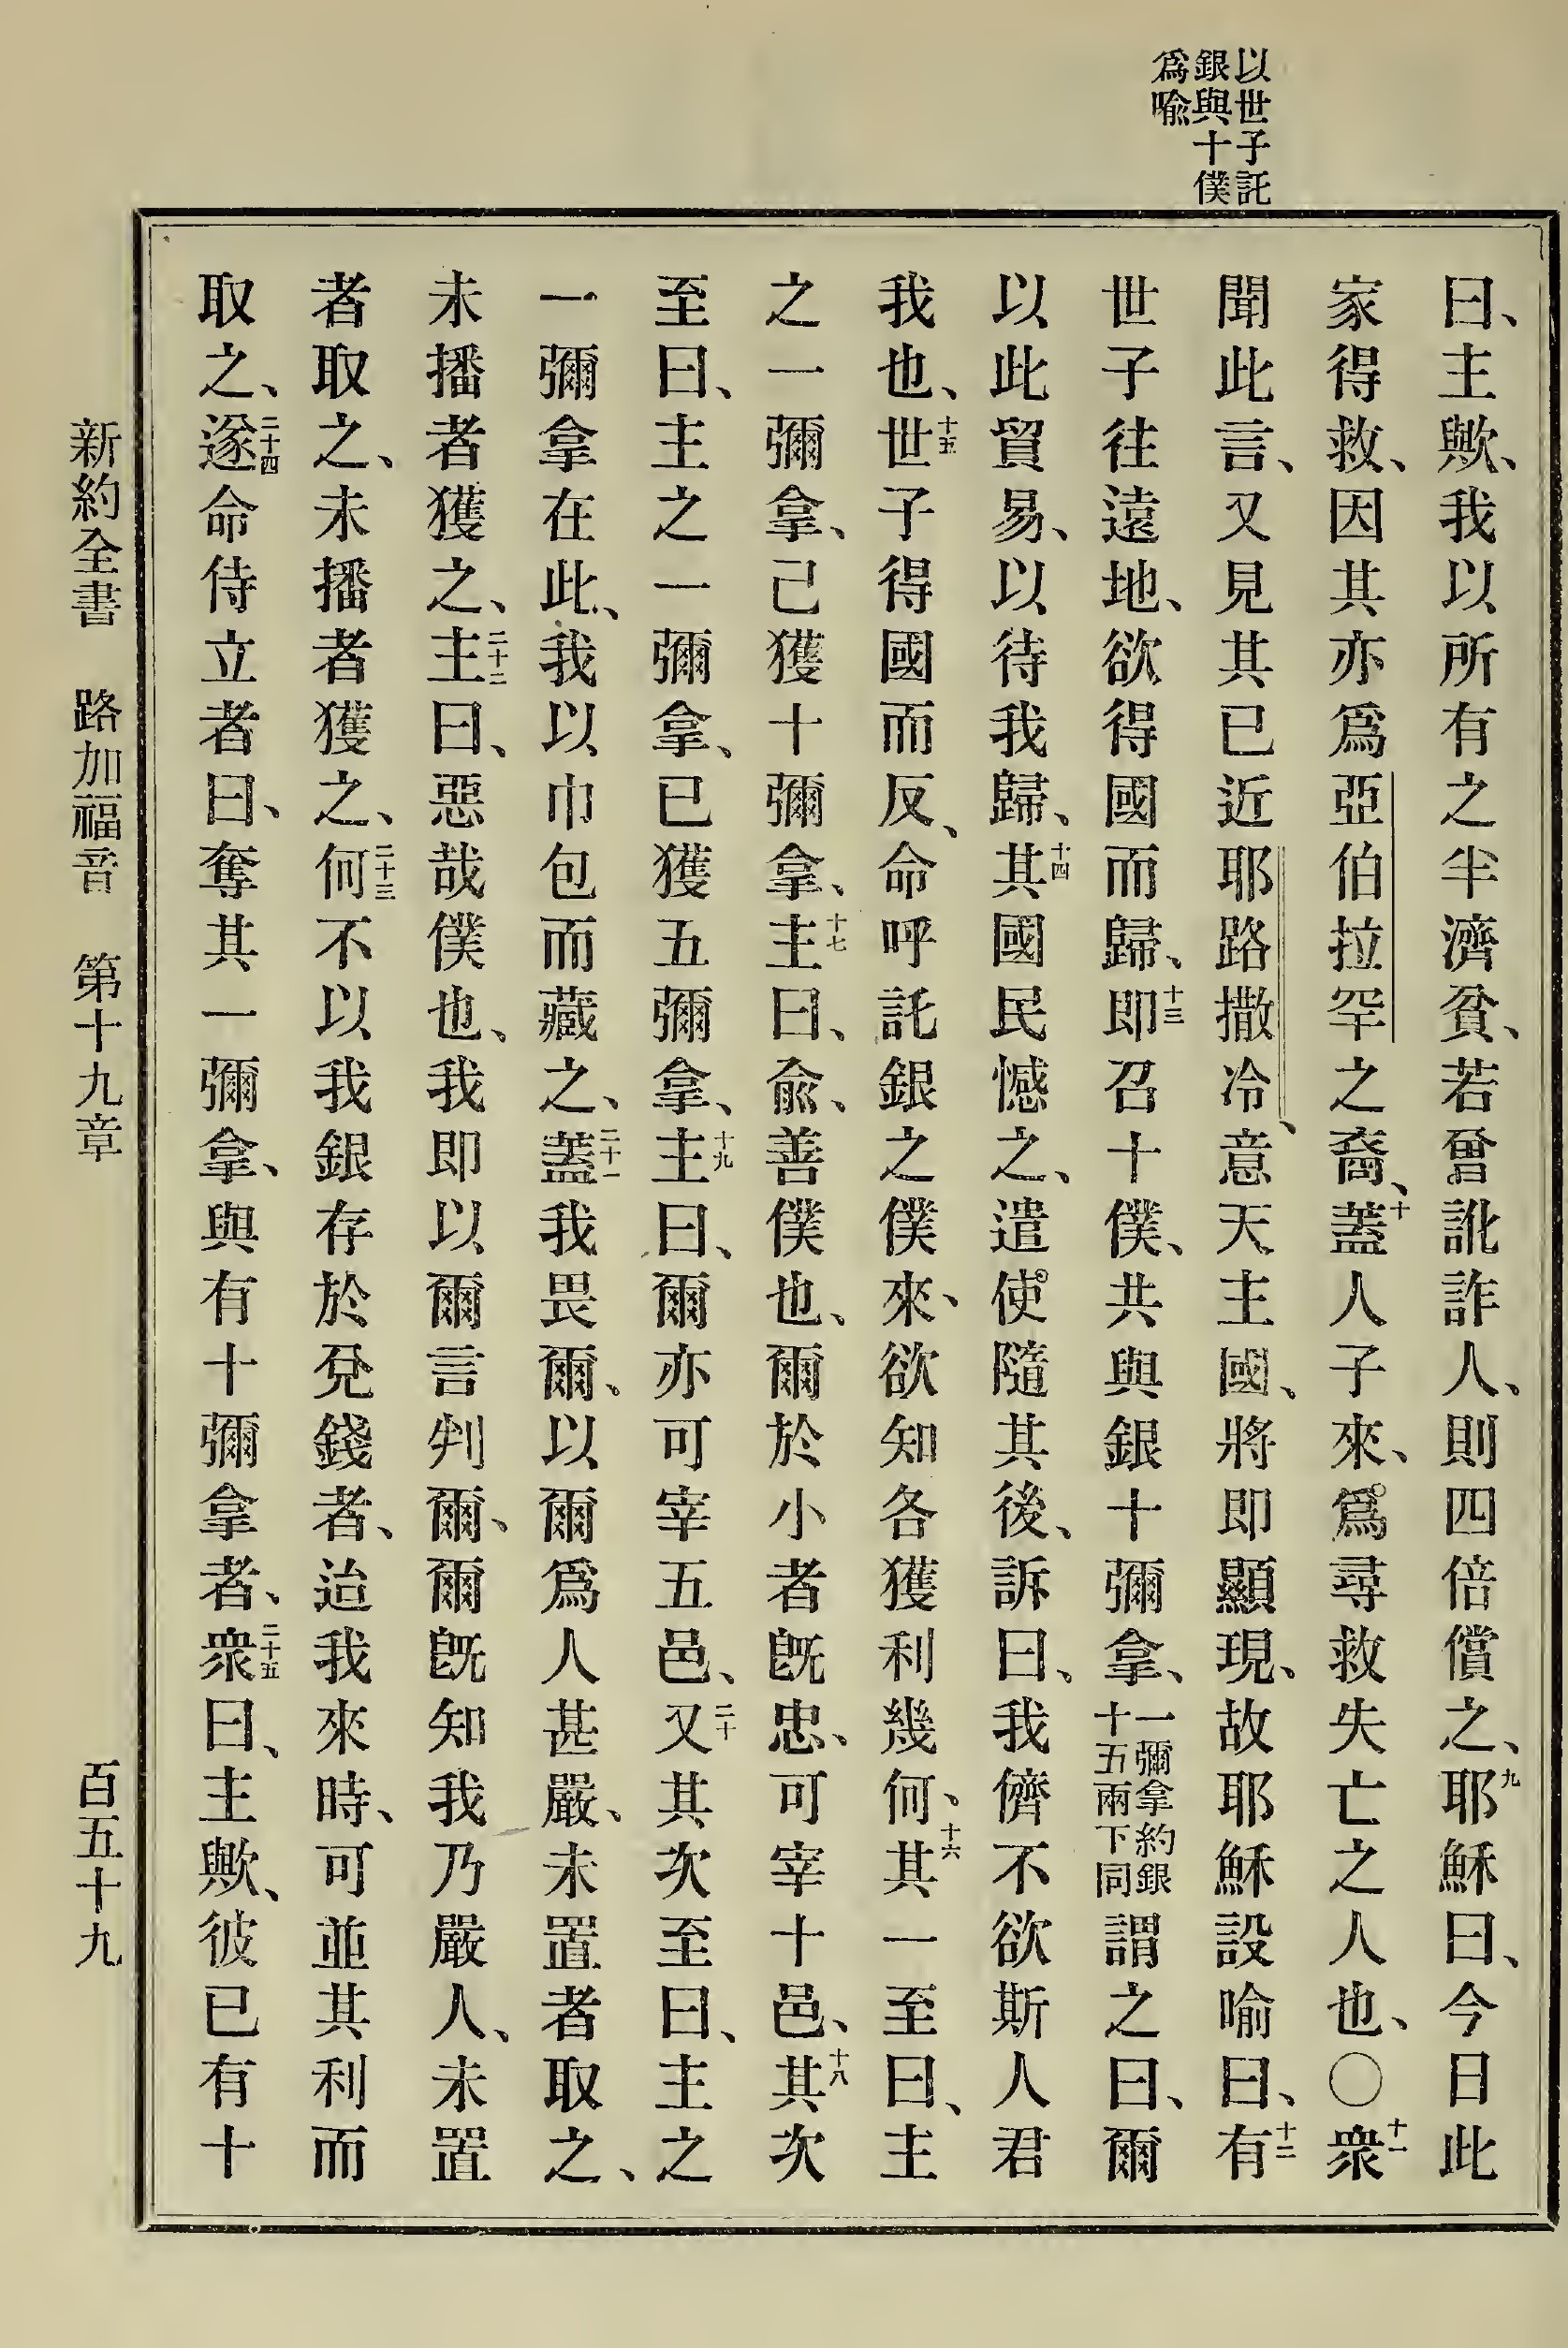 以世子託
銀與十僕
爲喩
曰、主歟、我以所有之半濟貧、若曾訛詐人、則四倍償之、九耶穌曰、今日此
家得救、因其亦爲亞伯拉罕之裔、十蓋人子來、爲尋救失亡之人也、〇十一衆
聞此言、又見其已近耶路撒冷、意天主國、將即顯現、故耶穌設喻曰、十二有
世子往遠地、欲得國而歸、十三即召十僕、共與銀十彌拿、一彌拿約銀十五兩下同謂之曰、爾
以此貿易、以待我歸、十四其國民憾之、遣使隨其後、訴曰、我儕不欲斯人君
我也、十五世子得國而反、命呼託銀之僕來、欲知各獲利幾何、十六其一至曰、主
之一彌拿、己獲十彌拿、十七主曰、兪、善僕也、爾於小者旣忠、可宰十邑、十八其次
至曰、主之一彌拿、已獲五彌拿、十九主曰、爾亦可宰五邑、二十又其次至曰、主之
一彌拿在此、我以巾包而藏之、二十一蓋我畏爾、以爾爲人甚嚴、未置者取之、
未播者獲之、二十二主曰、惡哉僕也、我即以爾言判爾、爾旣知我乃嚴人、未置
者取之、未播者獲之、二十三何不以我銀存於兌錢者、迨我來時、可並其利而
取之、二十四遂命侍立者曰、奪其一彌拿、與有十彌拿者、二十五衆曰、主歟、彼已有十
新約全書 路加福音 第十九章 百五十九